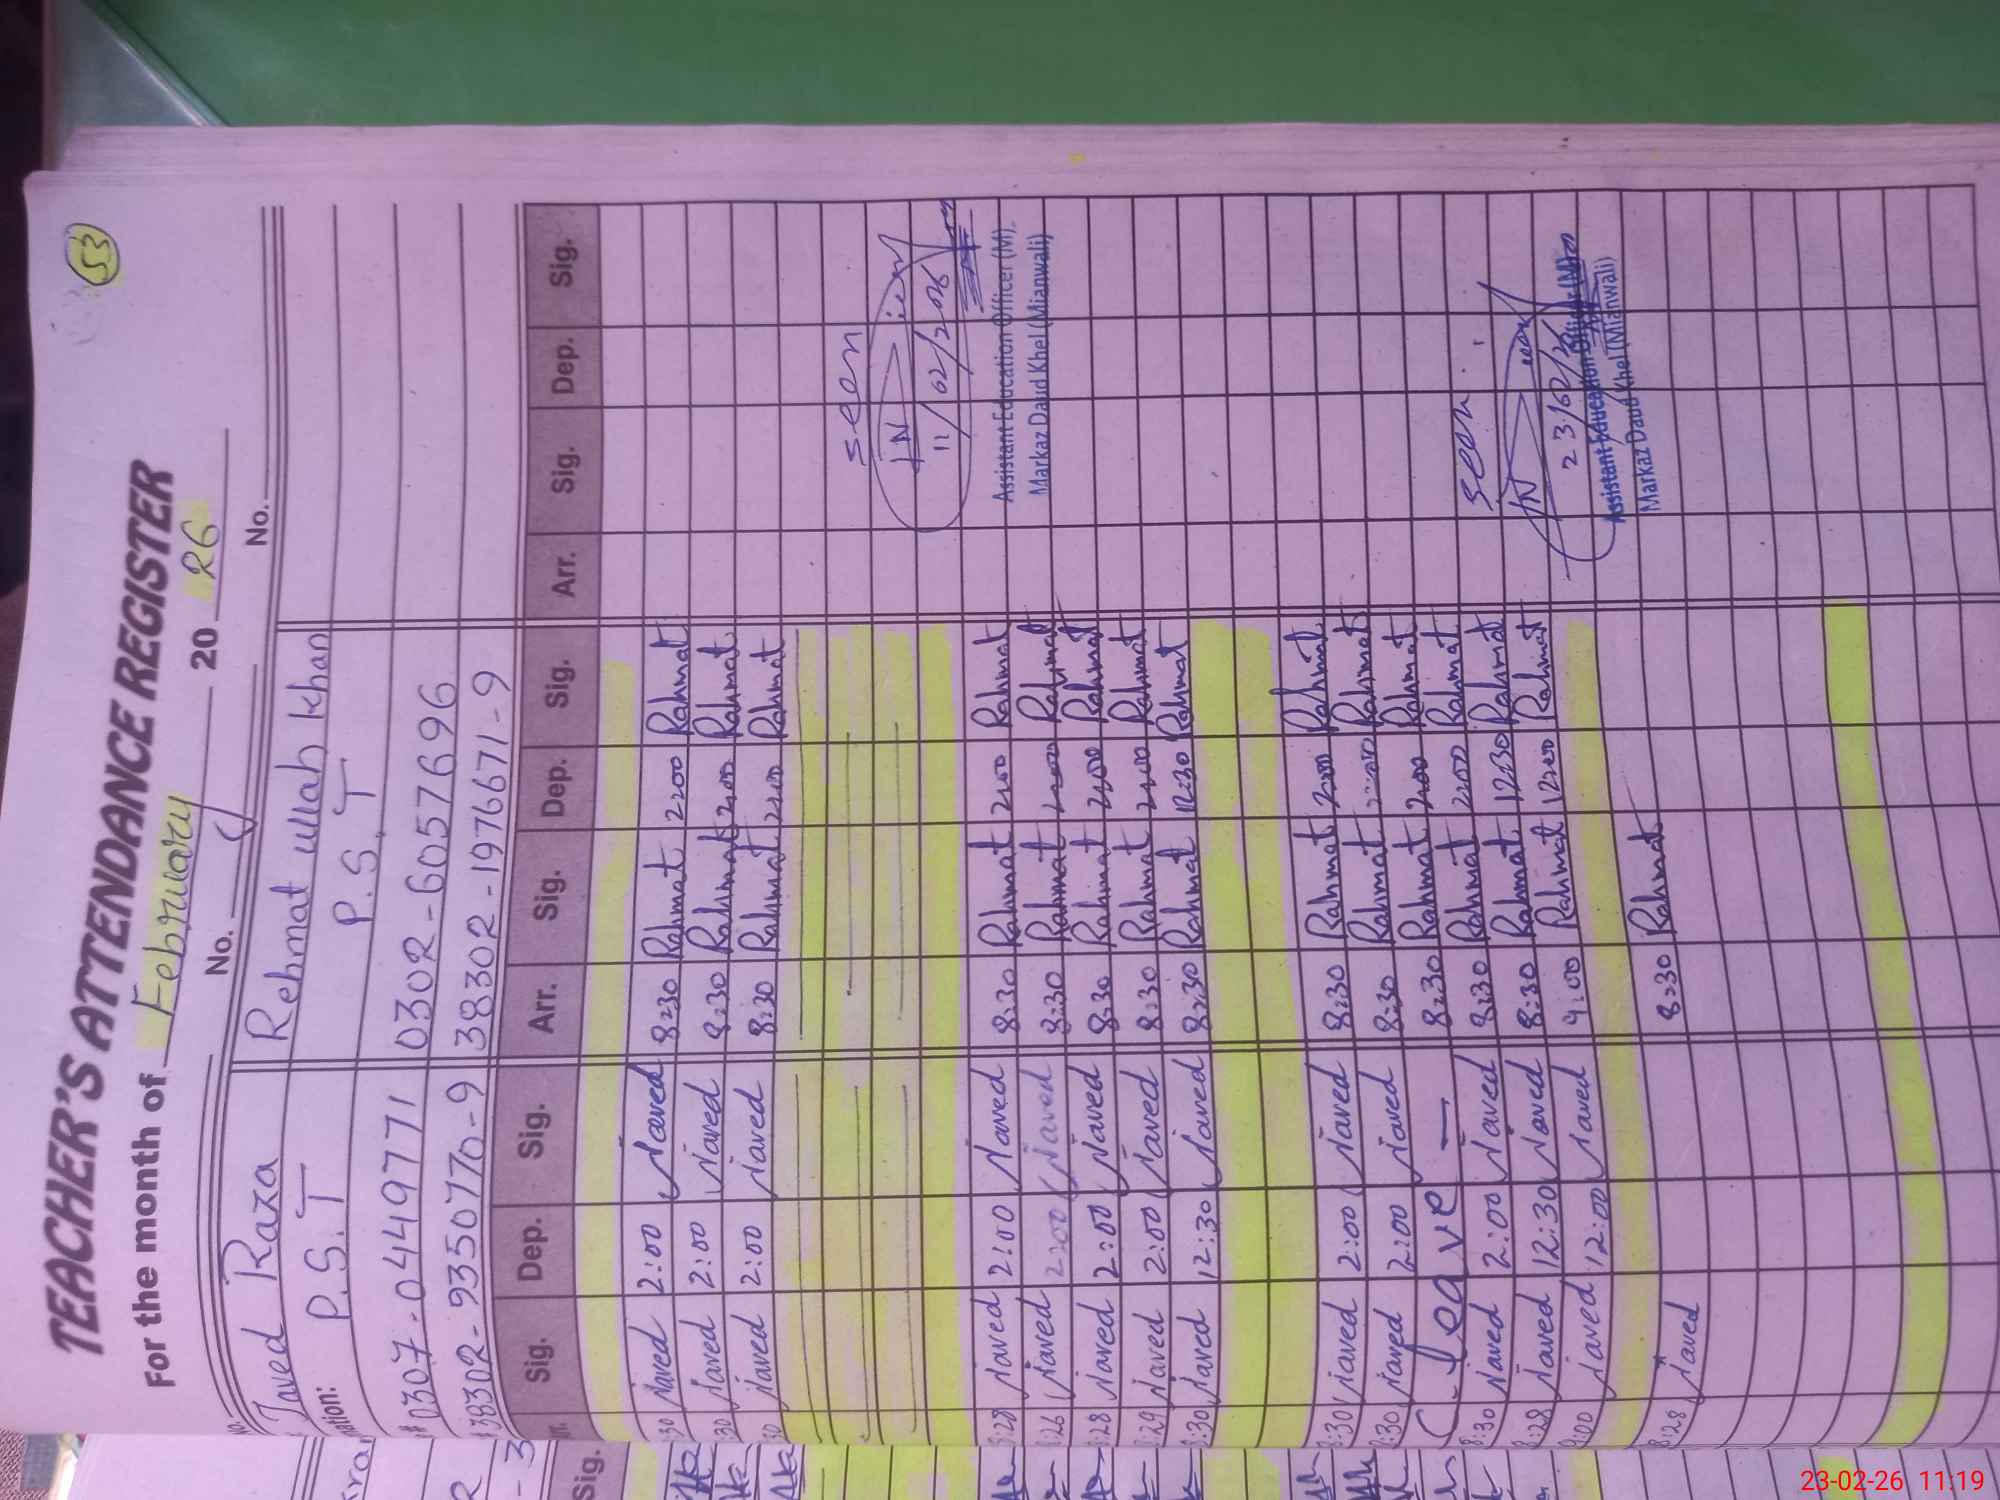 53
TEACHER'S ATTENDANCE REGISTER
For the month of February 2026
No. No.
Javed Raza Rehmat ullah khan
P.S.T P.S.T
0307-0449771 0302-6057696
38302-9350770-9 38302-1976671-9
Sig. Dep. Sig. Arr. Sig. Dep. Sig. Arr. Sig. Dep. Sig.
:30 Javed 2:00 Javed 8:30 Rahmat 2:00 Rahmat
:30 Javed 2:00 Javed 8:30 Rahmat 2:00 Rahmat
:30 Javed 2:00 Javed 8:30 Rahmat 2:00 Rahmat
seen
11/02/2026
:28 Javed 2:00 Javed 8:30 Rahmat 2:00 Rahmat
Assistant Education Officer (M)
:26 Javed 2:00 Javed 8:30 Rahmat 2:00 Rahmat
Markaz Daud Khel (Mianwali)
:28 Javed 2:00 Javed 8:30 Rahmat 2:00 Rahmat
:29 Javed 2:00 Javed 8:30 Rahmat 2:00 Rahmat
:30 Javed 12:30 Javed 8:30 Rahmat 12:30 Rahmat
:30 Javed 2:00 Javed 8:30 Rahmat 2:00 Rahmat
:30 Javed 2:00 Javed 8:30 Rahmat 2:00 Rahmat
C. Leave — 8:30 Rahmat 2:00 Rahmat
8:30 Javed 2:00 Javed 8:30 Rahmat 2:00 Rahmat
seen
:28 Javed 12:30 Javed 8:30 Rahmat 12:30 Rahmat
9:00 Javed 12:00 Javed 9:00 Rahmat 12:00 Rahmat
23/02/26
Assistant Education Officer (M)
Markaz Daud Khel (Mianwali)
8:28 Javed 8:30 Rahmat
Sig.
23-02-26 11:19